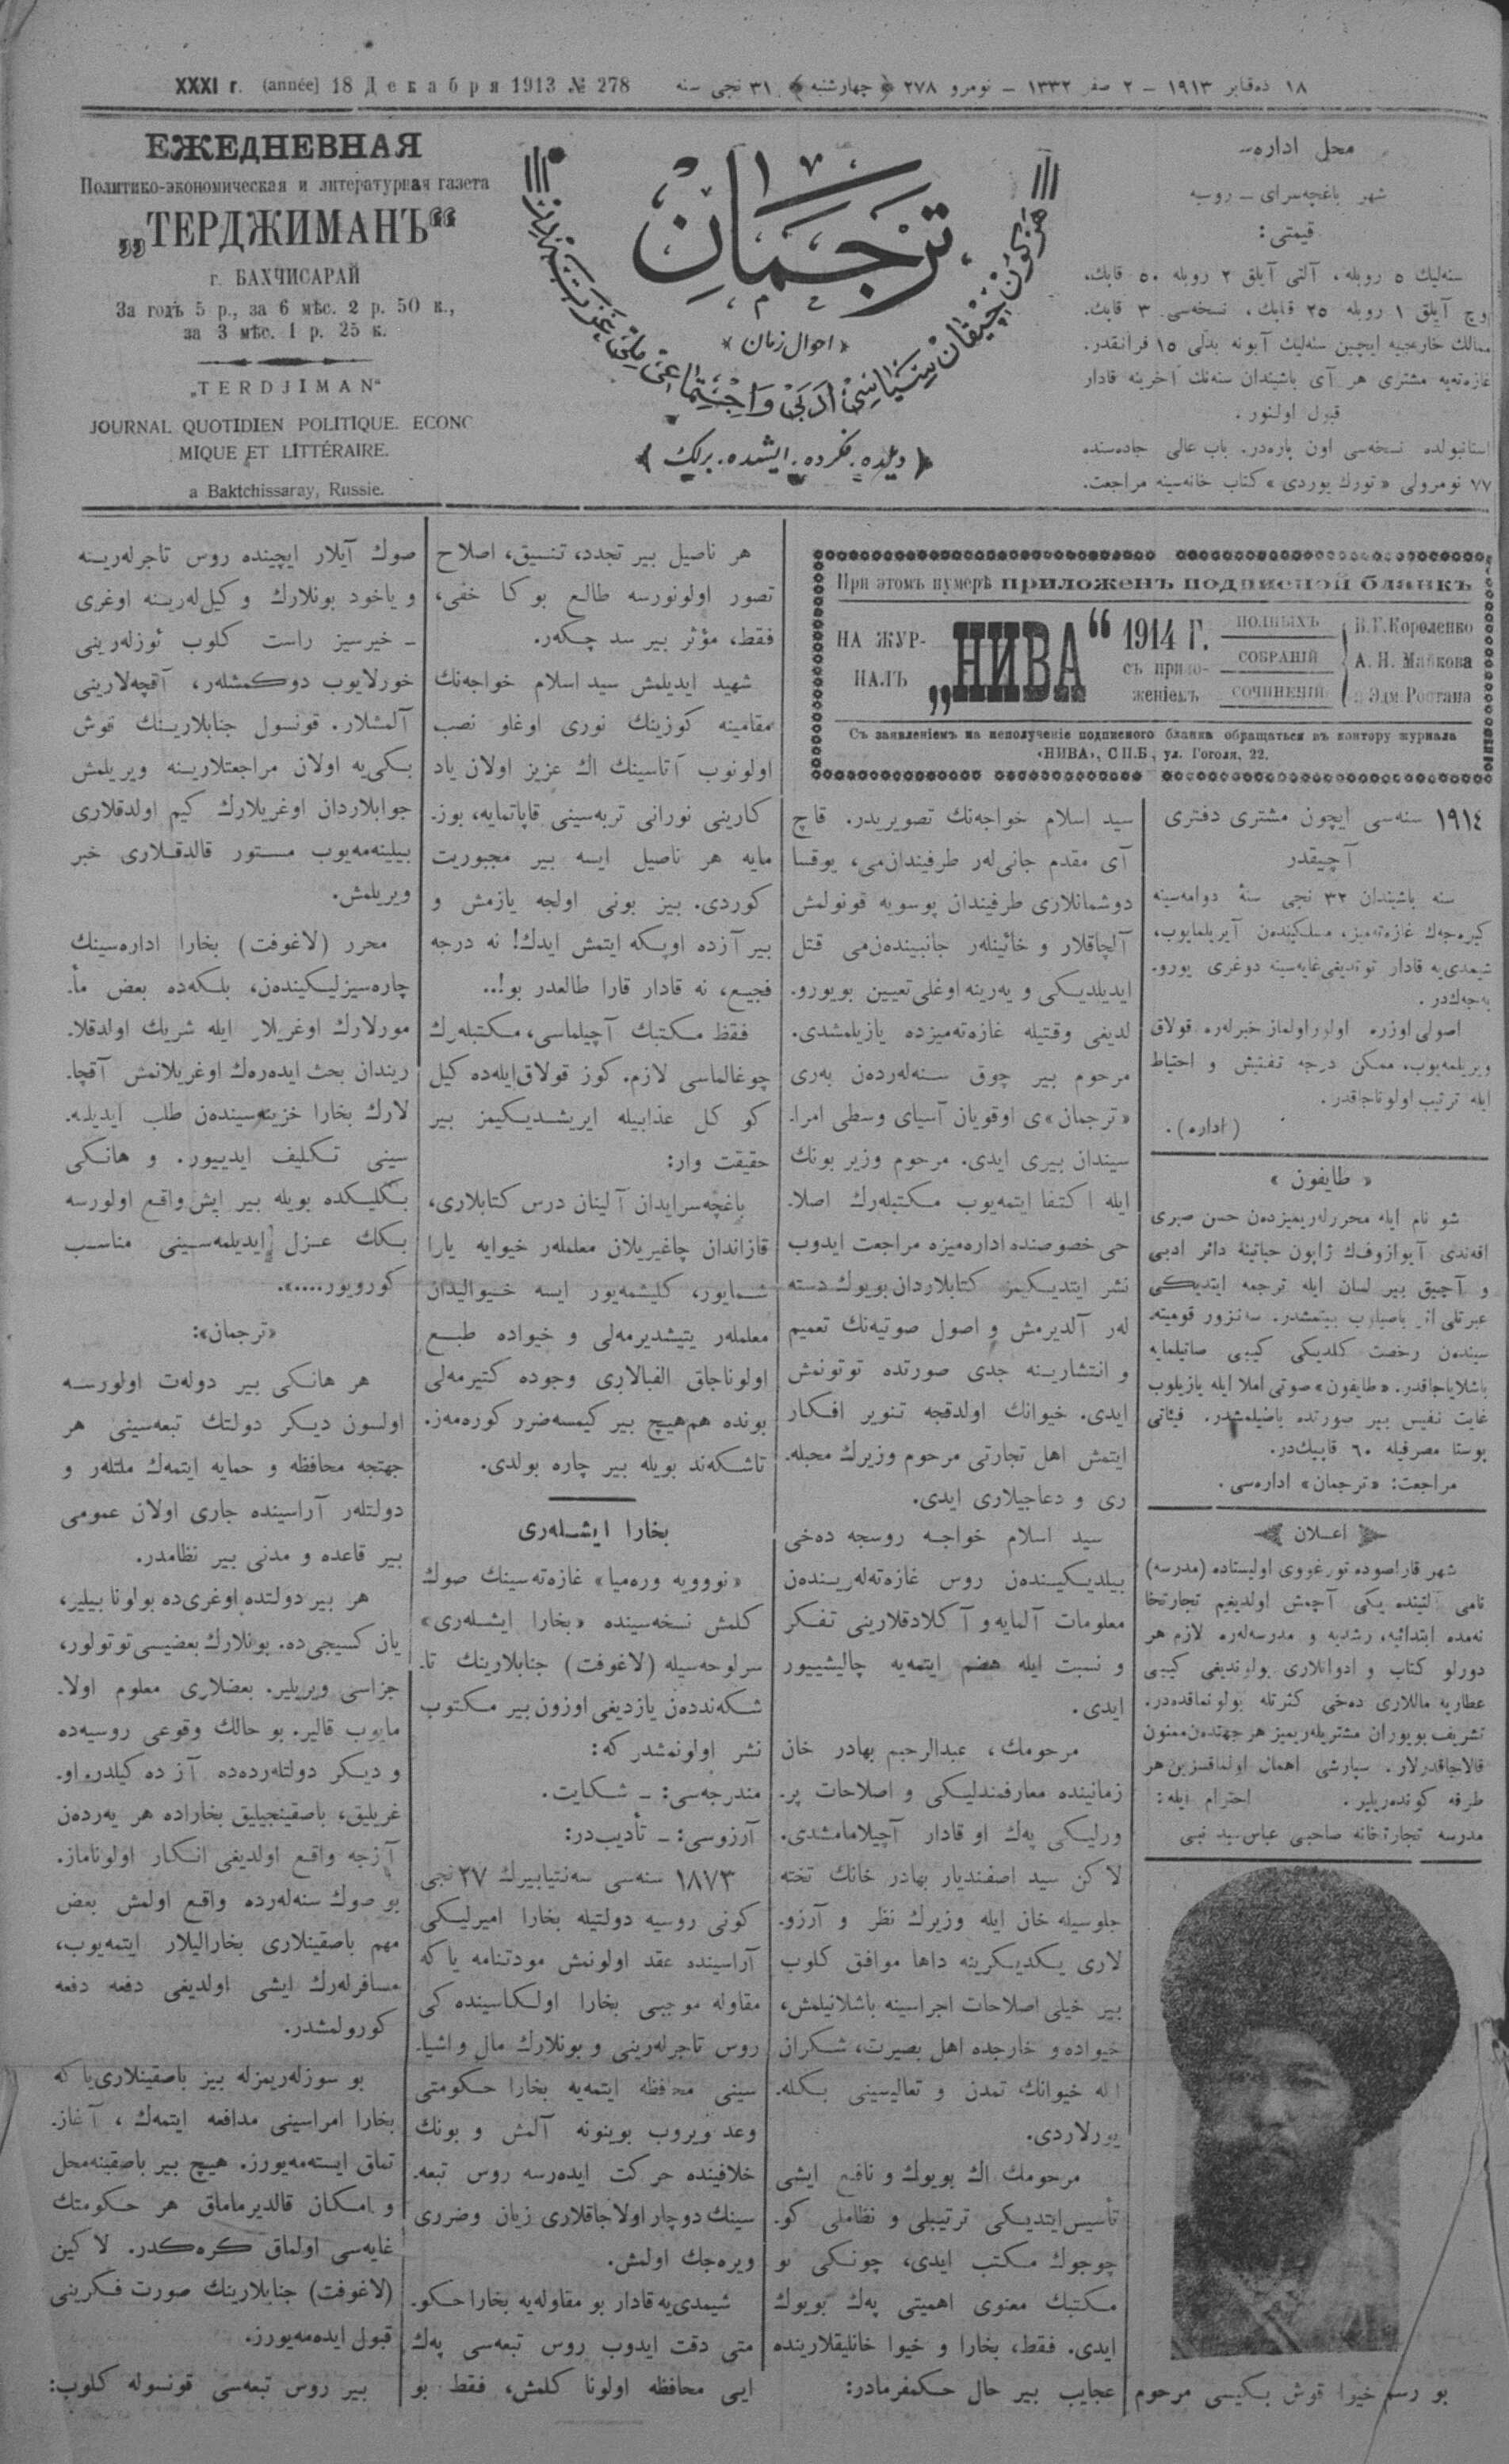 XXXI г. (année) 18 Декабря 1913 № 278
١٨ دەقابر ١٩١٣ – ٢ صفر ١٣٣٢ – نومرو ٢٧٨ ﴿چهارشنبه﴾ ٣١ نجی سنه
ЕЖЕДНЕВНАЯ
Политико-экономическая и литературная газета
„ТЕРДЖИМАНЪ“
г. БАХЧИСАРАЙ
За годъ 5 р., за 6 мѣс. 2 р. 50 к.,
за 3 мѣс. 1 р. 25 к.
„TERDJIMAN“
JOURNAL QUOTIDIEN POLITIQUE. ECONO
MIQUE ET LITTÉRAIRE.
a Baktchissaray, Russie.
ترجمان
«احوال زمان»
﴿دیلده. فکرده. ایشده. برلك﴾
محل اداره‌سی
شهر باغچه‌سرای ـ روسیه
قیمتی:
سنه‌لیك ٥ روبله، آلتی آیلق ٢ روبله ٥٠ قاپك،
اوچ آیلق ١ روبله ٢٥ قاپك، نسخه‌سی ٣ قاپك.
ممالك خارجیه ایچین سنه‌لیك آبونه بدلی ١٥ فرانقدر.
غازه‌ته‌یه مشتری هر آی باشیندان سنه‌نك آخرینه قادار
قبول اولنور.
استانبولده نسخه‌سی اون پاره‌در. باب عالی جاده‌سنده
٧٧ نومرولی «تورك یوردی» کتاب خانه‌سینه مراجعت.
При этомъ нумерѣ приложенъ подписной бланкъ
НА ЖУР-
НАЛЪ
„НИВА“
1914 Г.
съ прило-
женіемъ
ПОЛНЫХЪ
СОБРАНІЙ
СОЧИНЕНІЙ
В. Г. Короленко
А. Н. Майкова
и Эдм. Ростана
Съ заявленіемъ на неполученіе подписного бланка обращаться въ контору журнала
«НИВА», СП.Б., ул. Гоголя, 22.
١٩١٤ سنه‌سی ایچون مشتری دفتری
آچیقدر
سنه باشیندان ٣٢ نجی سنهٔ دوامه‌سینه
کیره‌جه‌ك غازه‌ته‌میز، مسلکیندەن آیریلمایوب،
شیمدی‌یه قادار توتدیغی غایه‌سینه دوغری یورو-
یه‌جه‌كدر.
اصولی اوزره اولور اولماز خبرلەره قولاق
ویریلمه‌یوب، ممکن درجه تفتیش و احتیاط
ایله ترتیب اولوناجاقدر.
(اداره).
«طایفون»
شو نام ایله محررلەریمیزدەن حسن صبری
افه‌ندی آیوازوفك ژاپون حیاتینهٔ دائر ادبی
و آچیق بیر لسان ایله ترجمه ایتدیکی
عبرتلی اثر باصیلوب بیتمشدر. سه‌نزور قومیته‌-
سیندەن رخصت کلدیکی کیبی صاتیلمایه
باشلایاجاقدر. «طایفون» صوتی املا ایله یازیلوب
غایت نفیس بیر صورتده باصیلمشدر. فیئاتی
پوستا مصرفیله ٦٠ قاپیك‌در.
مراجعت: «ترجمان» اداره‌سی.
اعلان
شهر قاراصوده تورغووی اولیستاده (مدرسه)
نامی آلتینده یکی آچمش اولدیغیم تجارتخا
نه‌مده ابتدائیه، رشدیه و مدرسه‌لەره لازم هر
دورلو کتاب و ادواتلاری بولوندیغی کیبی
عطاریه ماللاری ده‌خی کثرتله بولونماقده‌در.
تشریف بویوران مشتریلەریمیز هر جهتدەن ممنون
قالاجاقدرلار. سپارشی اهمال اولماقسزین هر
طرفه کونده‌ریلیر. احترام ایله:
مدرسه تجارتخانه صاحبی عباس سید نبی
بو رسم خیوا قوش بکیسی مرحوم
سید اسلام خواجه‌نك تصویریدر. قاچ
آی مقدم جانی‌لەر طرفیندان‌می، یوقسا
دوشمانلاری طرفیندان پوسویه قونولمش
آلچاقلار و خائینلەر جانبیندەن‌می قتل
ایدیلدیکی و یه‌رینه اوغلی تعیین بویورو-
لدیغی وقتیله غازه‌ته‌میزده یازیلمشدی.
مرحوم بیر چوق سنه‌لەردەن بەری
«ترجمان»ی اوقویان آسیای وسطی امرا-
سیندان بیری ایدی. مرحوم وزیر بونك
ایله اکتفا ایتمه‌یوب مکتبلەرك اصلا-
حی خصوصنده اداره‌میزه مراجعت ایدوب
نشر ایتدیکیمز کتابلاردان بویوك دسته
لەر آلدیرمش و اصول صوتیه‌نك تعمیم
و انتشارینه جدی صورتده توتونمش
ایدی. خیوانك اولدقجه تنویر افکار
ایتمش اهل تجارتی مرحوم وزیرك محبله‌-
ری و دعاجیلاری ایدی.
سید اسلام خواجه روسجه ده‌خی
بیلدیکیندەن روس غازه‌ته‌لەریندەن
معلومات آلمایه و آکلادقلارینی تفکر
و نسبت ایله هضم ایتمه‌یه چالیشیییور
ایدی.
مرحومك، عبدالرحیم بهادر خان
زمانینده معارفمندلیکی و اصلاحات پر-
ورلیکی په‌ك او قادار آچیلامامشدی.
لاکن سید اصفندیار بهادر خانك تخته
جلوسیله خان ایله وزیرك نظر و آرزو-
لاری یکدیکرینه داها موافق کلوب
بیر خیلی اصلاحات اجراسینه باشلانیلمش،
خیواده و خارجده اهل بصیرت، شکران
ایله خیوانك تمدن و تعالیسینی بکله‌-
یورلاردی.
مرحومك اك بویوك و نافع ایشی
تأسیس ایتدیکی ترتیبلی و نظاملی کو-
چوجوك مکتب ایدی، چونکی بو
مکتبك معنوی اهمیتی په‌ك بویوك
ایدی. فقط، بخارا و خیوا خانلیقلارینده
عجایب بیر حال حکمفرمادر:
هر ناصیل بیر تجدد، تنسیق، اصلاح
تصور اولونورسه طالع بوکا خفی،
فقط، مؤثر بیر سد چکەر.
شهید ایدیلمش سید اسلام خواجه‌نك
مقامینه کوزینك نوری اوغلو نصب
اولونوب آتاسینك اك عزیز اولان یاد
کارینی نورانی تربه‌سینی قاپاتمایه، بوز-
مایه هر ناصیل ایسه بیر مجبوریت
کوردی. بیز بونی اولجه یازمش و
بیر آزده اوپکه ایتمش ایدك! نه درجه
فجیع، نه قادار قارا طالعدر بو!..
فقط مکتبك آچیلماسی، مکتبلەرك
چوغالماسی لازم. کوز قولاق ایله‌ده کیل
کو کل عذابیله ایریشدیکیمز بیر
حقیقت وار:
باغچه‌سرایدان آلینان درس کتابلاری،
قازاندان چاغیریلان معلملەر خیوایه یارا
شمایور، کلیشمه‌یور ایسه خیوالیدان
معلملەر یتیشدیرمه‌لی و خیواده طبع
اولوناجاق الفبالاری وجوده کتیرمه‌لی
بونده هم‌هیچ بیر کیمسه ضرر کوره‌مەز.
تاشکەند بویله بیر چاره بولدی.
بخارا ایشلەری
«نوویه وره‌میا» غازه‌ته‌سینك صوك
کلمش نسخه‌سینده «بخارا ایشلەری»
سرلوحه‌سیله (لاغوفت) جنابلارینك تا-
شکەنددەن یازدیغی اوزون بیر مکتوب
نشر اولونمشدر که:
مندرجه‌سی: ـ شکایت.
آرزوسی: ـ تأدیب‌در:
١٨٧٣ سنه‌سی سه‌نتیابیرك ٢٧ نجی
کونی روسیه دولتیله بخارا امیرلیکی
آراسینده عقد اولونمش مودتنامه یا که
مقاوله موجبی بخارا اولکاسینده کی
روس تاجرلەرینی و بونلارك مال و اشیا-
سینی محافظه ایتمه‌یه بخارا حکومتی
وعد ویروب بوینونه آلمش و بونك
خلافینده حرکت ایده‌رسه روس تبعه‌-
سینك دوچار اولاجاقلاری زیان وضرری
ویره‌جك اولمش.
شیمدی‌یه قادار بو مقاوله‌یه بخارا حکو-
متی دقت ایدوب روس تبعه‌سی په‌ك
ایی محافظه اولونا کلمش، فقط بو
صوك آیلار ایچینده روس تاجرلەرینه
و یاخود بونلارك وکیل‌لەرینه اوغری
ـ خیرسیز راست کلوب ئوزلەرینی
خورلایوب دوکمشلەر، آقچه‌لارینی
آلمشلار. قونسول جنابلارینك قوش
بکی‌یه اولان مراجعتلارینه ویریلمش
جوابلاردان اوغریلارك کیم اولدقلاری
بیلینه‌مه‌یوب مستور قالدقلاری خبر
ویریلمش.
محرر (لاغوفت) بخارا اداره‌سینك
چاره‌سیزلیکیندەن، بلکه‌ده بعض مأ-
مورلارك اوغریلار ایله شریك اولدقلا-
ریندان بحث ایده‌رەك اوغریلانمش آقچا-
لارك بخارا خزینه‌سیندەن طلب ایدیلمه‌-
سینی تکلیف ایدییور. و هانکی
بکلیکده بویله بیر ایش واقع اولورسه
بکك عزل ایدیلمه‌سینی مناسب
کورویور....».
«ترجمان»:
هر هانکی بیر دولەت اولورسه
اولسون دیکر دولتك تبعه‌سینی هر
جهتجه محافظه و حمایه ایتمه‌ك ملتلەر و
دولتلەر آراسینده جاری اولان عمومی
بیر قاعده و مدنی بیر نظامدر.
هر بیر دولتده اوغری‌ده بولونا بیلیر،
یان کسیجی‌ده. بونلارك بعضیسی توتولور،
جزاسی ویریلیر. بعضلاری معلوم اولا-
مایوب قالیر. بو حالك وقوعی روسیه‌ده
و دیکر دولتلەرده‌ده آز ده کیلدر. او-
غریلیق، باصقینجیلیق بخاراده هر یه‌ردەن
آزجه واقع اولدیغی انکار اولوناماز.
بو صوك سنه‌لەرده واقع اولمش بعض
مهم باصقینلاری بخارالیلار ایتمه‌یوب،
مسافرلەرك ایشی اولدیغی دفعه دفعه
کورولمشدر.
بو سوزلەریمزله بیز باصقینلاری یا که
بخارا امراسینی مدافعه ایتمه‌ك، آغاز-
تماق ایسته‌مه‌یورز. هیچ بیر باصقینه محل
و امکان قالدیرماماق هر حکومتك
غایه‌سی اولماق کرەکدر. لاکین
(لاغوفت) جنابلارینك صورت فکرینی
قبول ایده‌مه‌یورز.
بیر روس تبعه‌سی قونسوله کلوب: